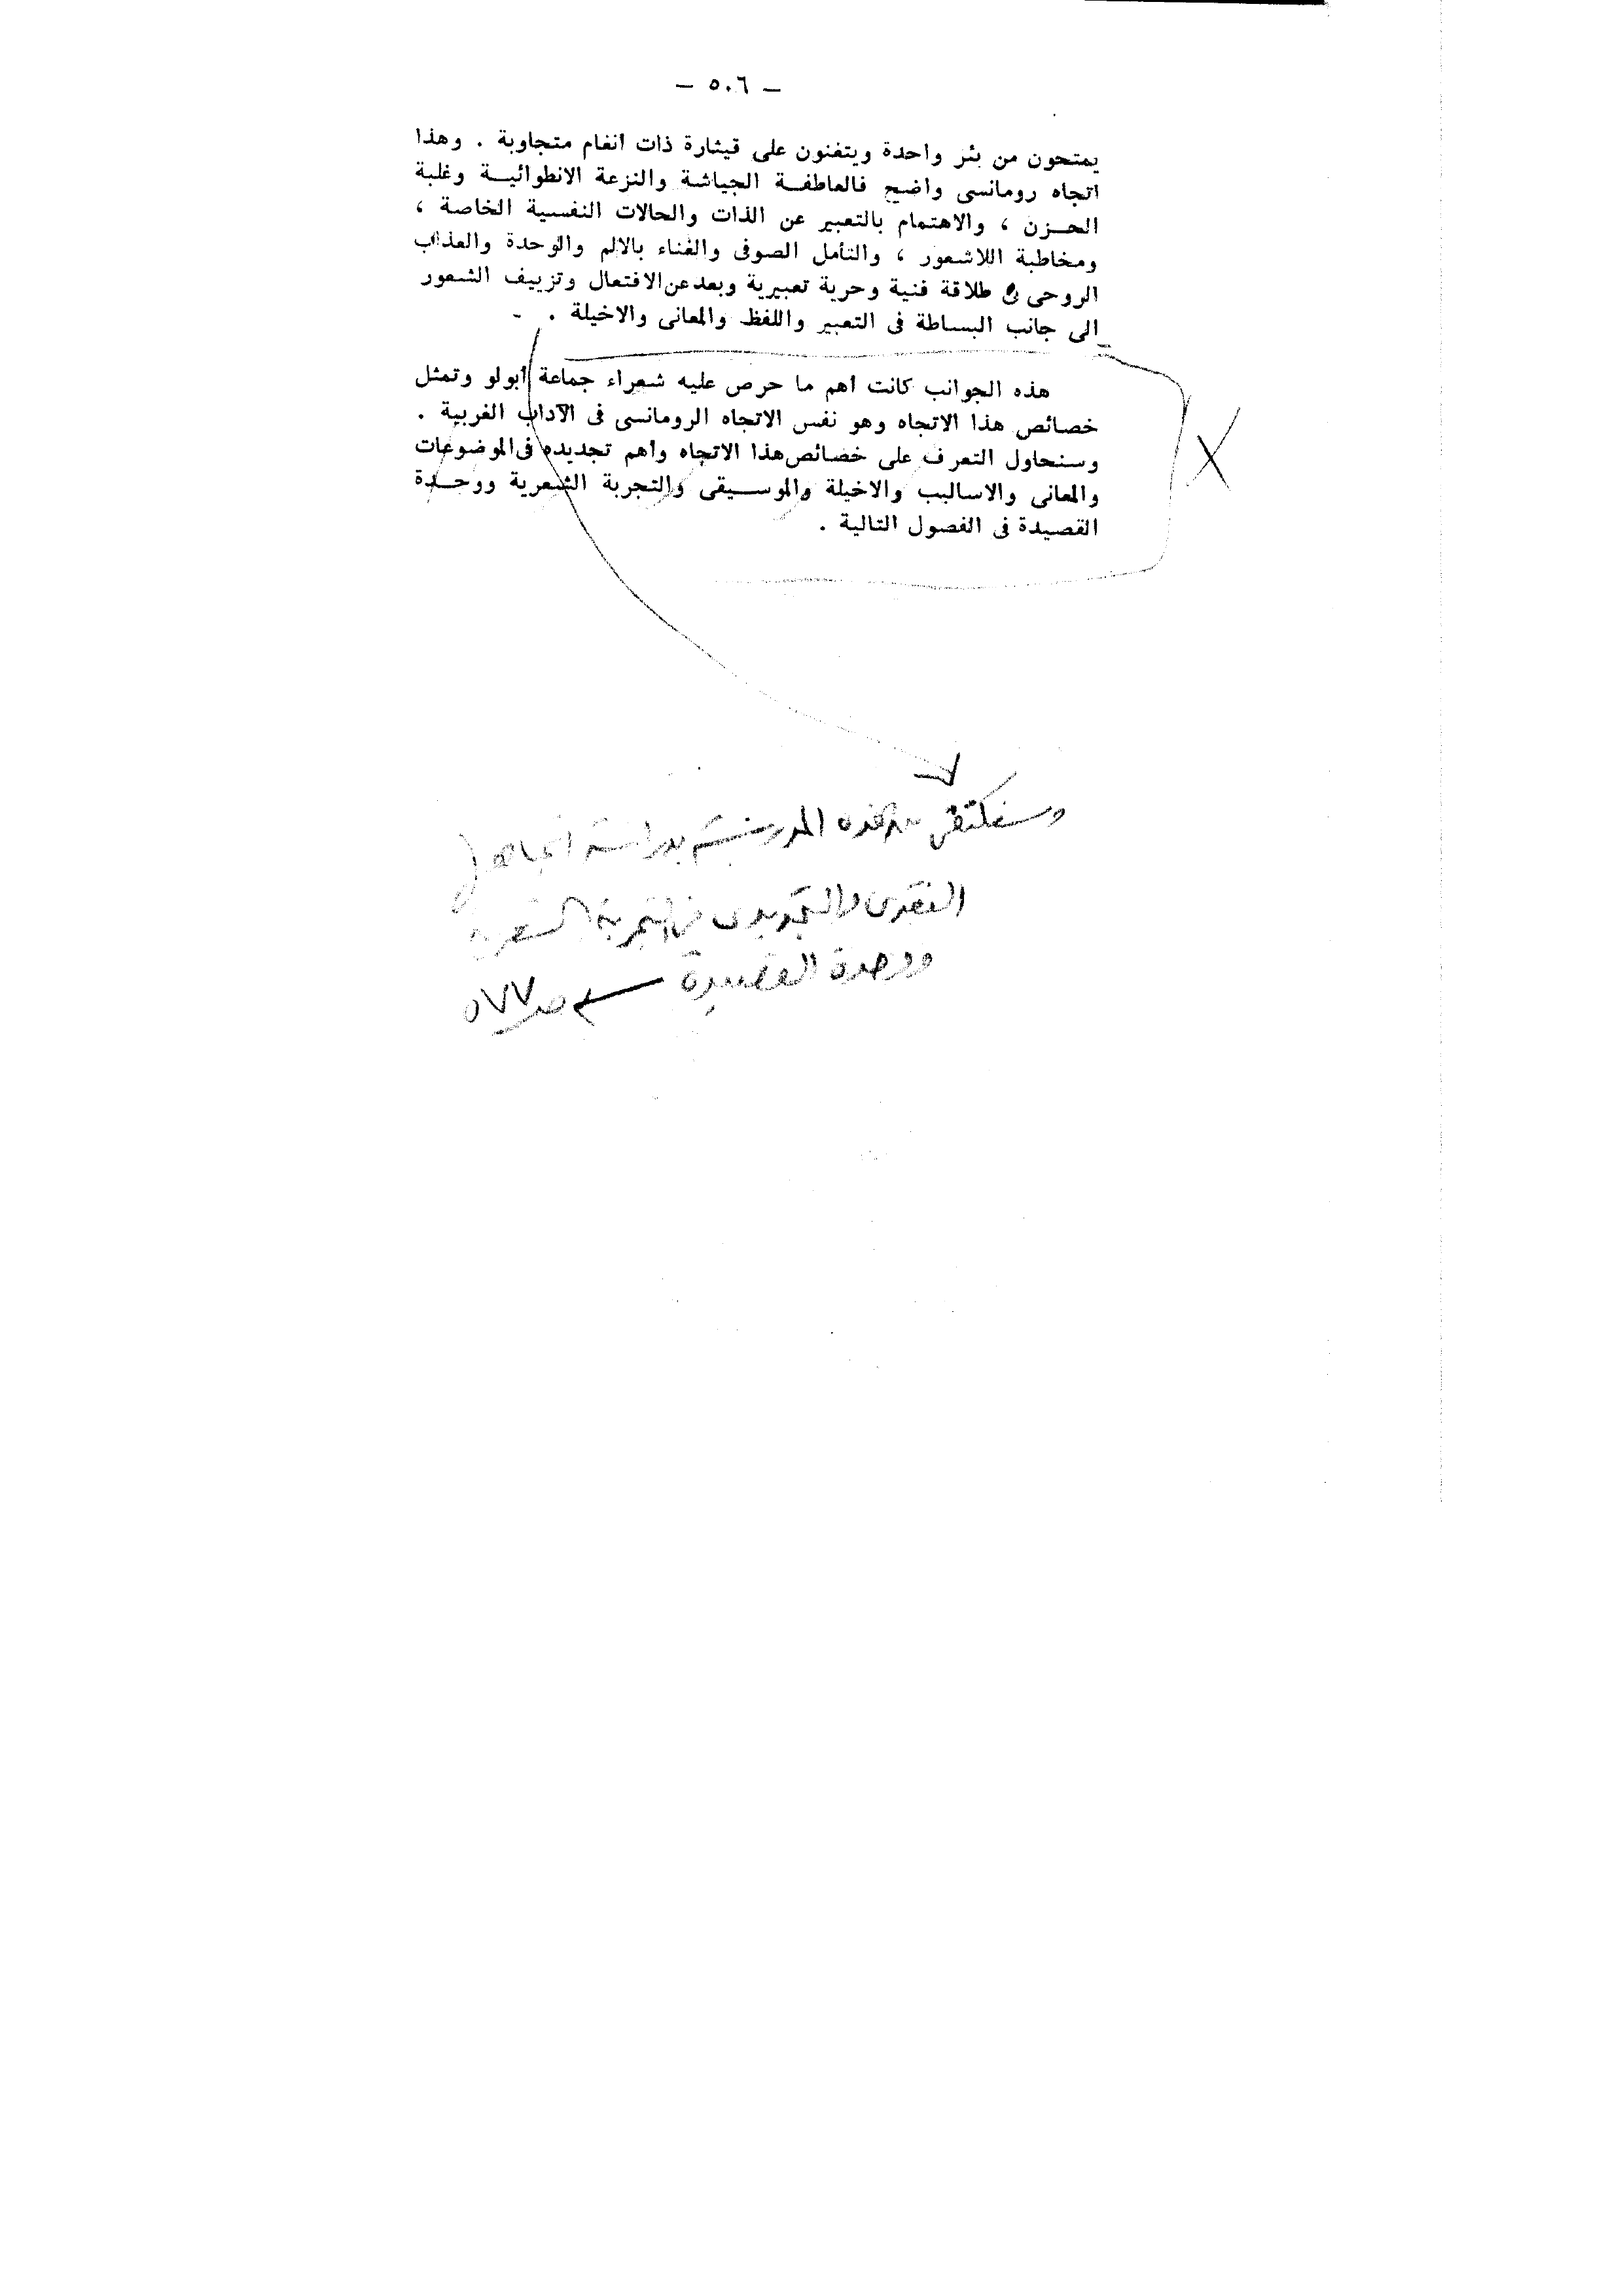 — ٥٠٦ —
يمتحون من بئر واحدة ويتغنون على قيثارة ذات انغام متجاوبة . وهذا
اتجاه رومانسى واضح فالعاطفة الجياشة والنزعة الانطوائية وغلبة
الحزن ، والاهتمام بالتعبير عن الذات والحالات النفسية الخاصة ،
ومخاطبة اللاشعور ، والتأمل الصوفى والغناء بالالم والوحدة والعذاب
الروحى فى طلاقة فنية وحرية تعبيرية وبعد عن الافتعال وتزييف الشعور
الى جانب البساطة فى التعبير واللفظ والمعانى والاخيلة .
هذه الجوانب كانت أهم ما حرص عليه شعراء جماعة أبولو وتمثل
خصائص هذا الاتجاه وهو نفس الاتجاه الرومانسى فى الآداب الغربية .
وسنحاول التعرف على خصائص هذا الاتجاه واهم تجديده فى الموضوعات
والمعانى والاساليب والاخيلة والموسيقى والتجربة الشعرية ووحدة
القصيدة فى الفصول التالية .
وسنكتفى هذه المدرسة بدراسة اتجاهها
النقدى والتجديدى فى التجربة الشعرية
ووحدة القصيدة ص ٥٧٧